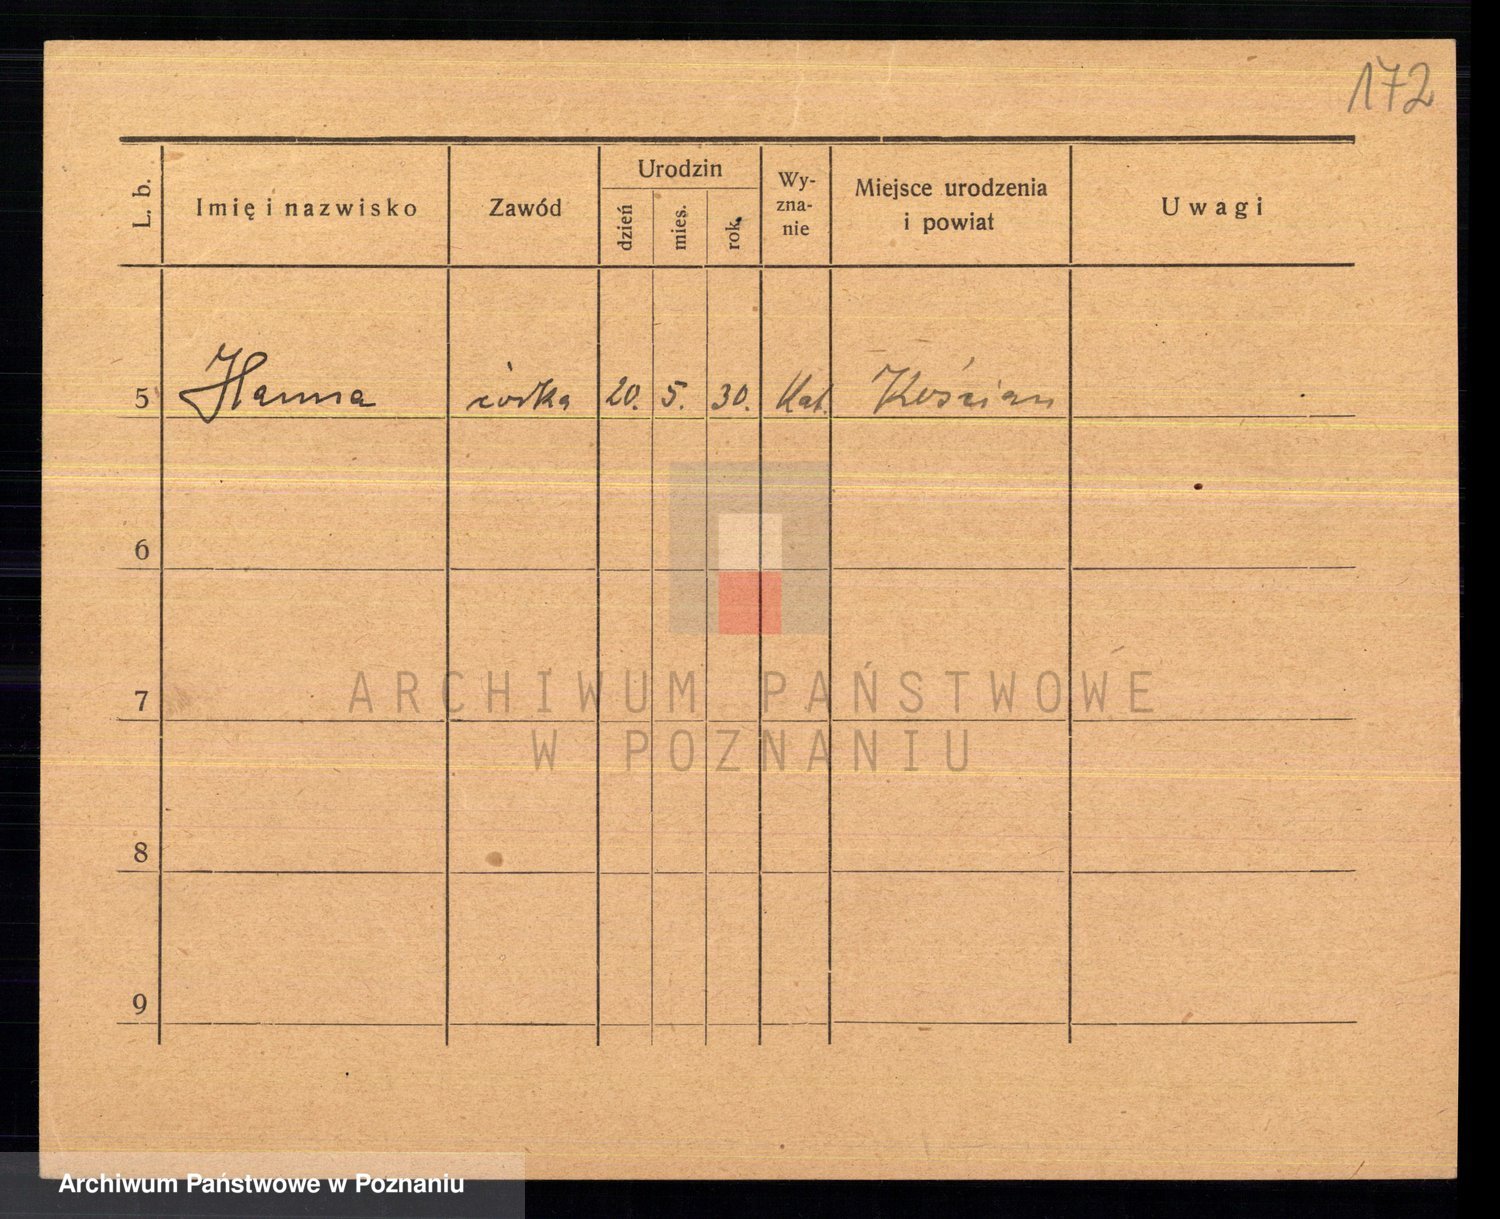 172
L. b. Imię i nazwisko Zawód Urodzin dzień mies. rok. Wy-zna-nie Miejsce urodzenia i powiat Uwagi
5 Hanna córka 20. 5. 30. Kat. Kościan
6
7
8
9
ARCHIWUM PAŃSTWOWE
W POZNANIU
Archiwum Państwowe w Poznaniu